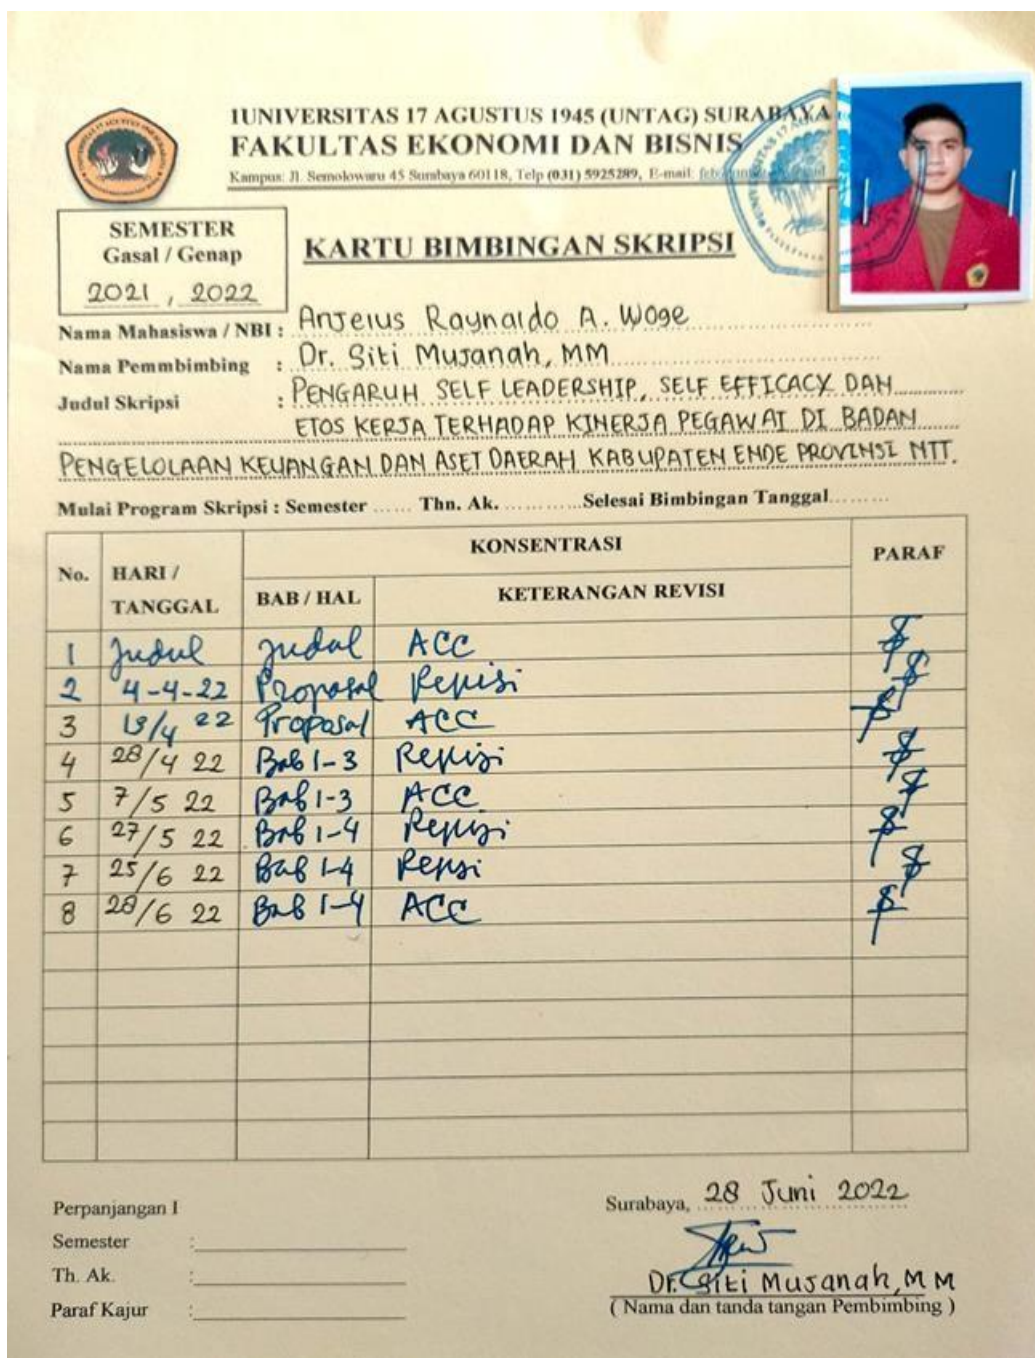 1UNIVERSITAS 17 AGUSTUS 1945 (UNTAG) SURABAYA
FAKULTAS EKONOMI DAN BISNIS
Kampus: Jl. Semolowaru 45 Surabaya 60118, Telp (031) 5925289, E-mail:
SEMESTER
Gasal / Genap
2021, 2022
KARTU BIMBINGAN SKRIPSI
Nama Mahasiswa / NBI : Anjelus Raynaldo A. Woge
Nama Pemmbimbing : Dr. Siti Mujanah, MM
Judul Skripsi : PENGARUH SELF LEADERSHIP, SELF EFFICACY DAN
ETOS KERJA TERHADAP KINERJA PEGAWAI DI BADAN
PENGELOLAAN KEUANGAN DAN ASET DAERAH KABUPATEN ENDE PROVINSI NTT.
Mulai Program Skripsi : Semester ...... Thn. Ak. ............Selesai Bimbingan Tanggal.........
No. HARI / TANGGAL KONSENTRASI PARAF
BAB / HAL KETERANGAN REVISI
1 Judul Judul ACC
2 4-4-22 Proposal Repisi
3 13/4 22 Proposal ACC
4 28/4 22 Bab 1-3 Repisi
5 7/5 22 Bab 1-3 ACC
6 27/5 22 Bab 1-4 Repisi
7 25/6 22 Bab 1-4 Repsi
8 28/6 22 Bab 1-4 ACC
Perpanjangan I
Semester :
Th. Ak. :
Paraf Kajur :
Surabaya, 28 Juni 2022
Dr. Siti Mujanah, MM
( Nama dan tanda tangan Pembimbing )